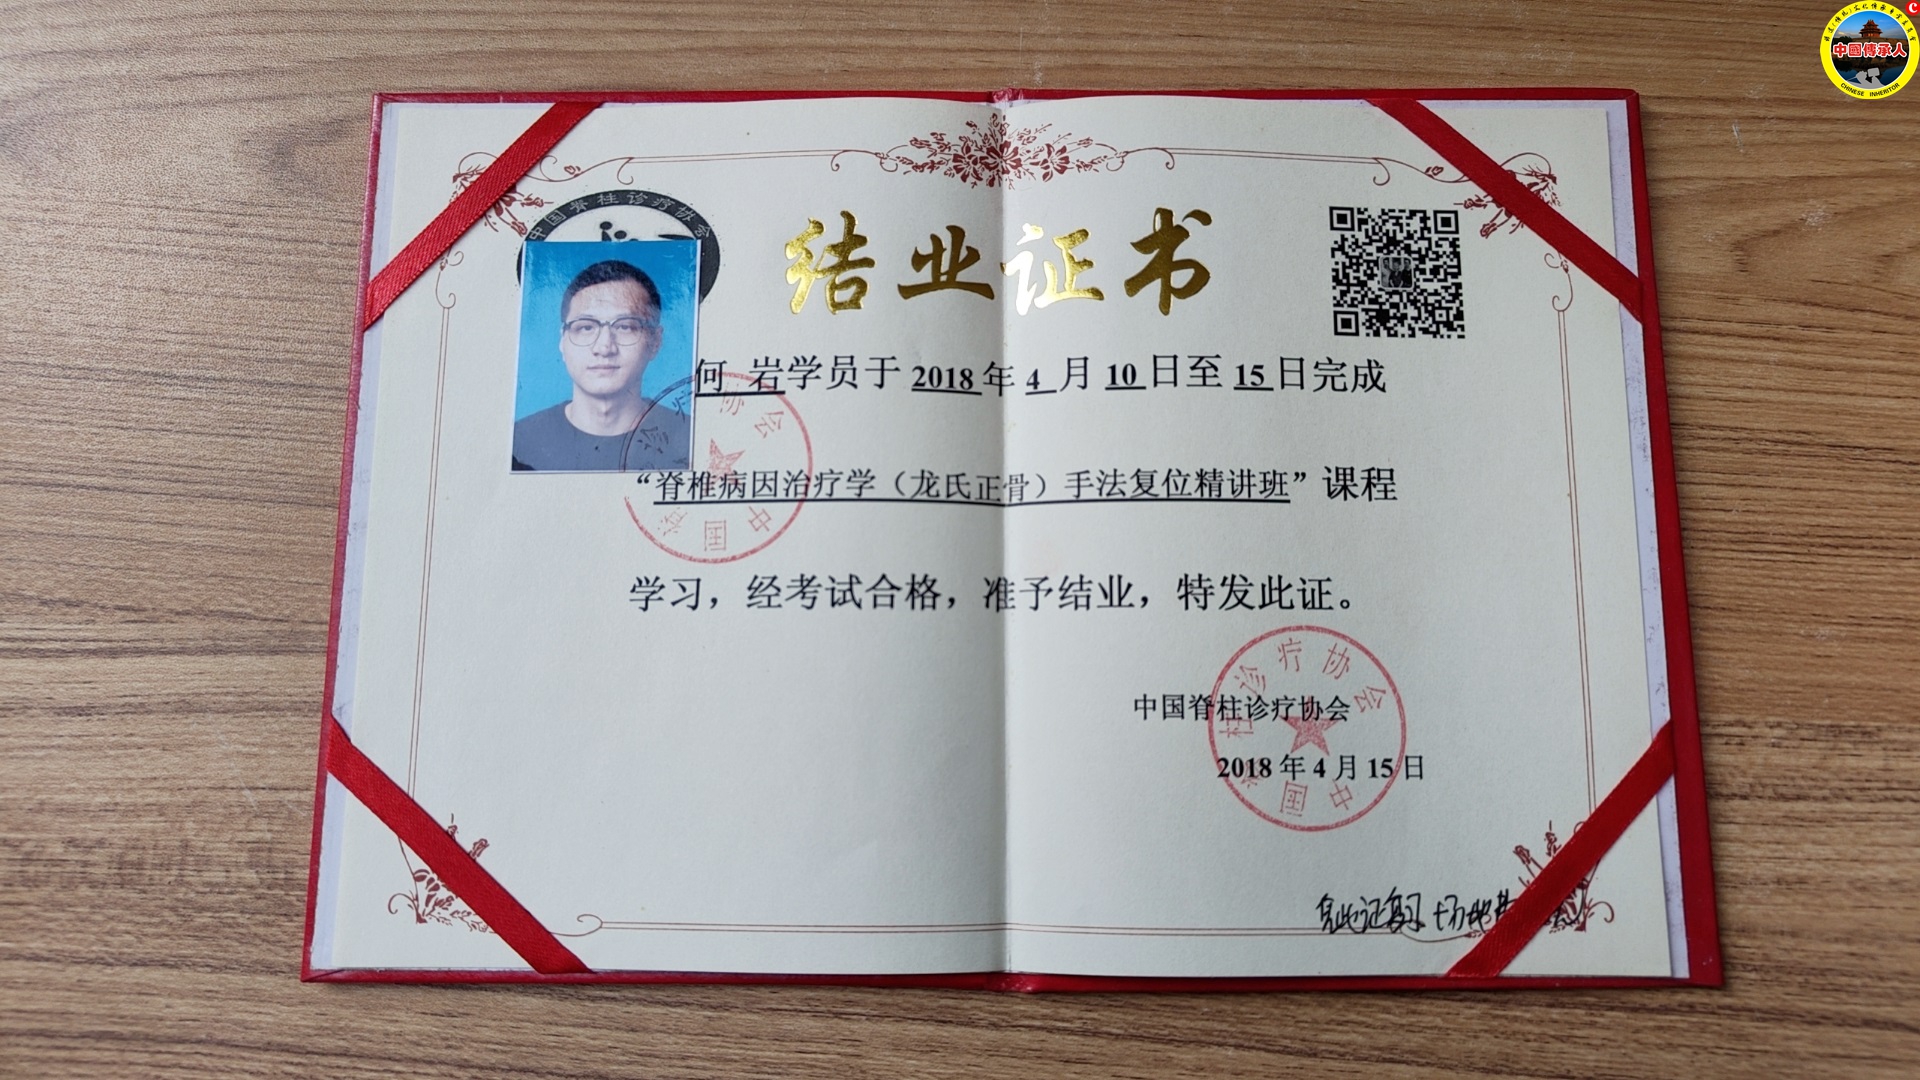 中國傳承人
CHINESE INHERITOR
中国脊柱诊疗协会
结业证书
何 岩学员于 2018 年 4 月 10 日至 15 日完成
“脊椎病因治疗学（龙氏正骨）手法复位精讲班”课程
学习，经考试合格，准予结业，特发此证。
中国脊柱诊疗协会
2018 年 4 月 15 日
凭此证复习